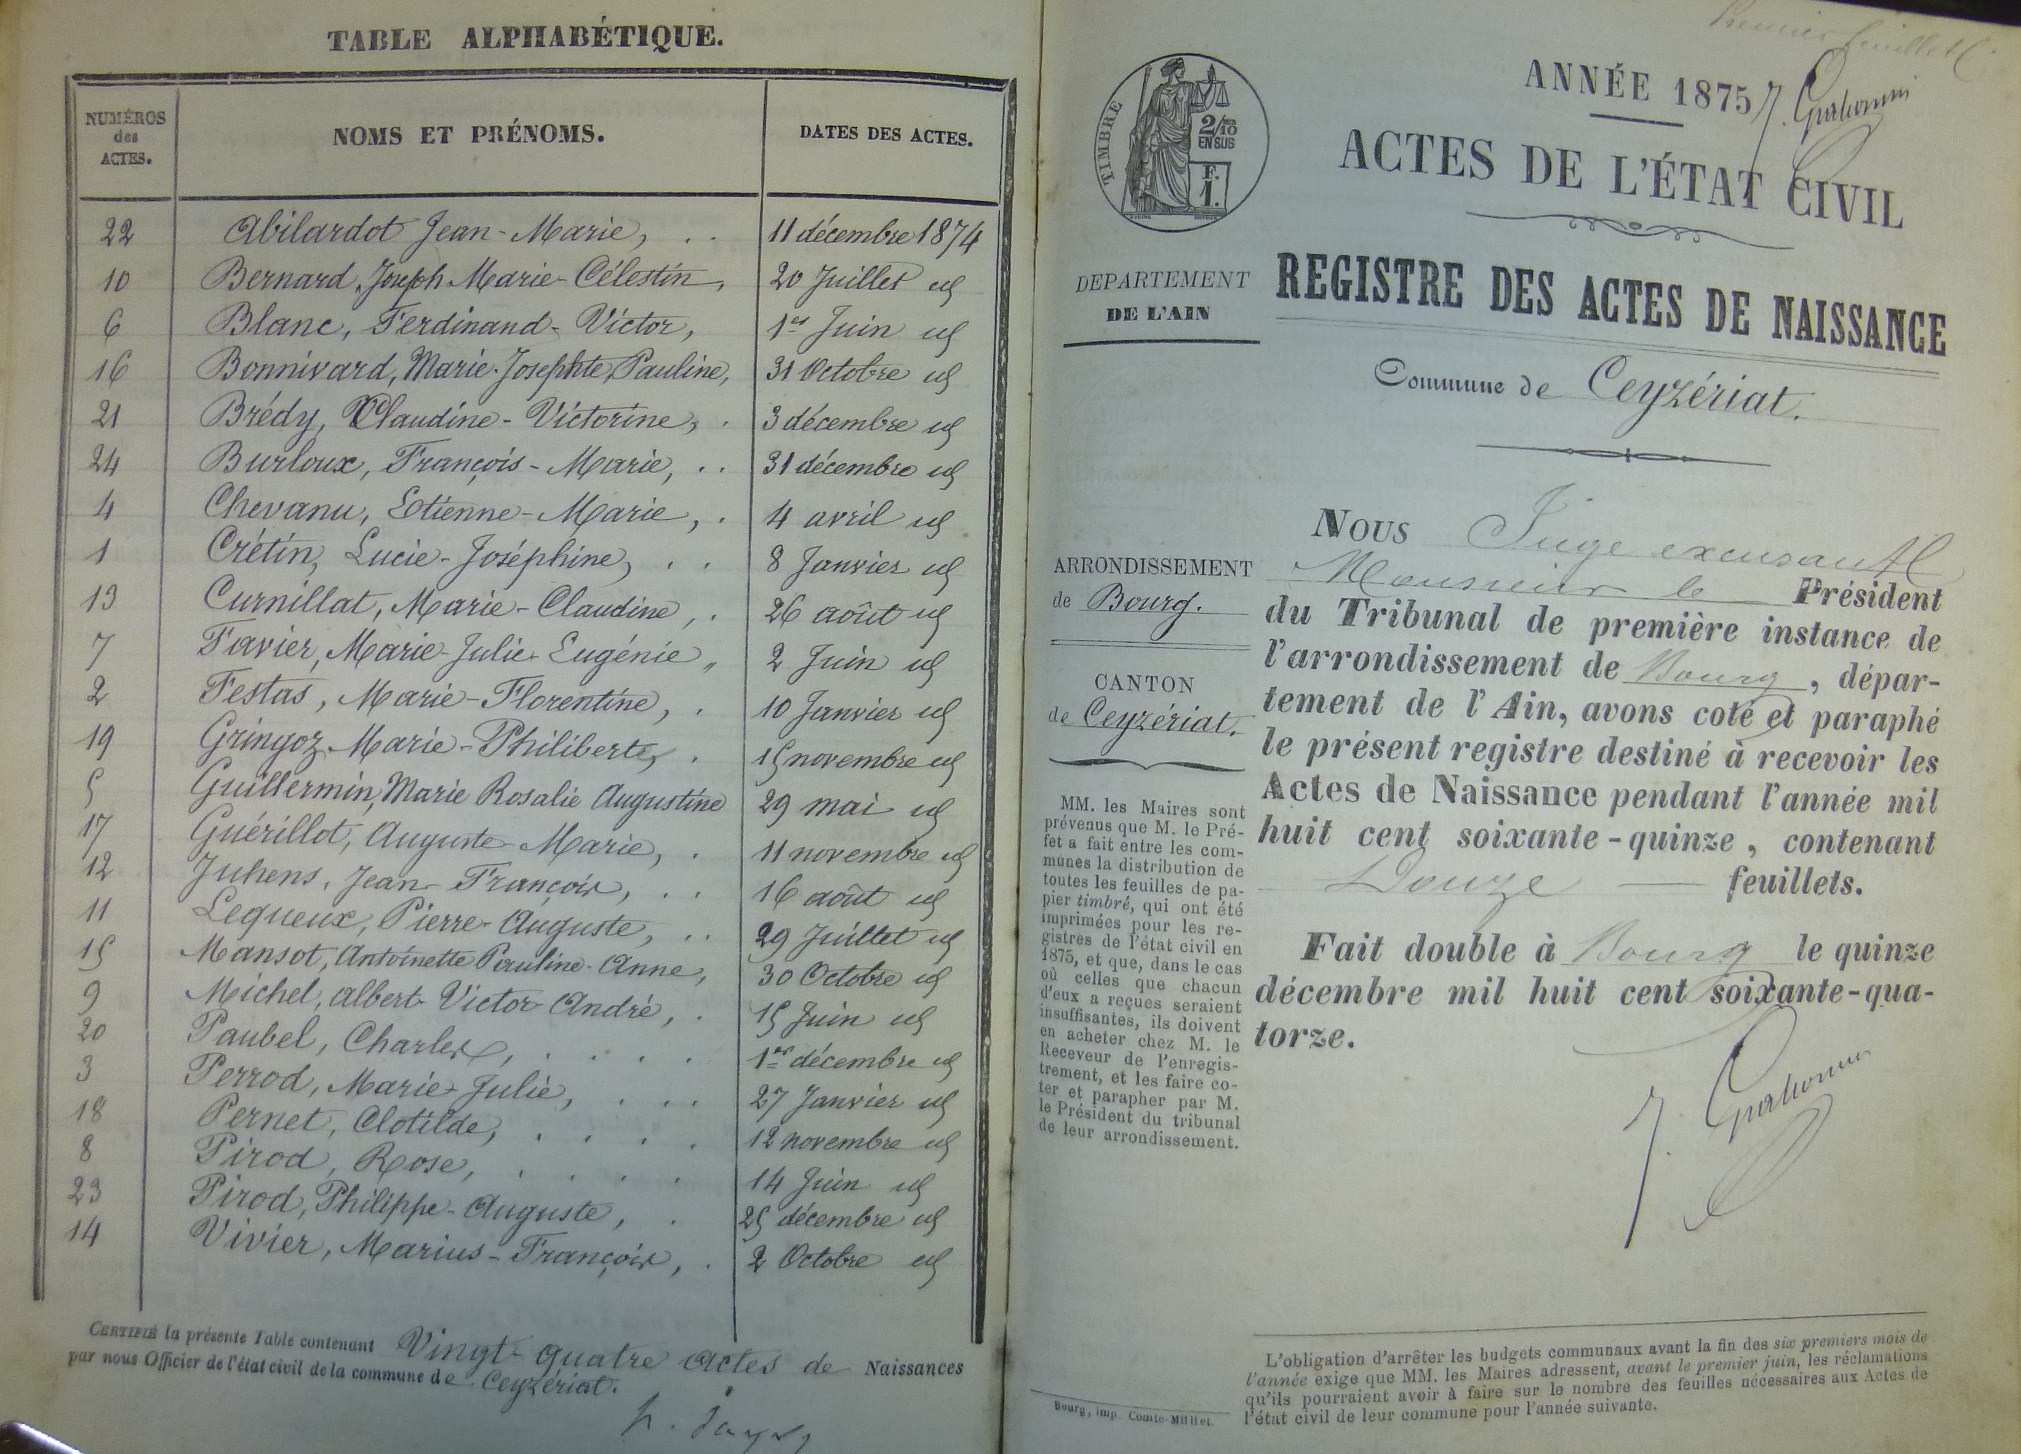 TABLE ALPHABÉTIQUE.
NUMÉROS des ACTES. NOMS ET PRÉNOMS. DATES DES ACTES.
22 Abilardot Jean-Marie, . . 11 décembre 1874
10 Bernard, Joseph Marie-Célestin, 20 Juillet id
6 Blanc, Ferdinand-Victor, 1er Juin id
16 Bonnivard, Marie-Josephte Pauline, 31 Octobre id
21 Brédy, Claudine-Victorine, . 3 décembre id
24 Burloux, François-Marie, . . 31 décembre id
4 Chevanu, Etienne-Marie, . 4 avril id
1 Crétin, Lucie-Joséphine, . . 8 Janvier id
13 Curnillat, Marie-Claudine, . 26 août id
7 Favier, Marie-Julie-Eugénie „ 2 Juin id
2 Festas, Marie-Florentine, . 10 Janvier id
19 Gringoz Marie-Philiberte, . 15 novembre id
5 Guillermin, Marie Rosalie Augustine 29 mai id
17 Guérillot, Auguste-Marie, . 11 novembre id
12 Juhens, Jean-François, . . 16 août id
11 Lequeux, Pierre-Auguste, . . 29 Juillet id
15 Mansot, Antoinette Pauline-Anne, 30 Octobre id
9 Michel, Albert-Victor-André, . 15 Juin id
20 Paubel, Charles, . . . . 1er décembre id
3 Perrod, Marie-Julie, . . . 27 Janvier id
18 Pernet, Clotilde, . . . . 12 novembre id
8 Pirod, Rose, . . . . 14 Juin id
23 Pirod, Philippe-Auguste, . 25 décembre id
14 Vivier, Marius-François, . 2 Octobre id
CERTIFIÉ la présente Table contenant Vingt-quatre actes de Naissances
par nous Officier de l'état civil de la commune de Ceyzériat.
Premier feuillet
ANNÉE 1875
TIMBRE
2/10 EN SUS
F. 1.
ACTES DE L'ÉTAT CIVIL
DEPARTEMENT
DE L'AIN
REGISTRE DES ACTES DE NAISSANCE
Commune de Ceyzériat.
ARRONDISSEMENT
de Bourg.
CANTON
de Ceyzériat.
MM. les Maires sont
prévenus que M. le Pré-
fet a fait entre les com-
munes la distribution de
toutes les feuilles de pa-
pier timbré, qui ont été
imprimées pour les re-
gistres de l'état civil en
1875, et que, dans le cas
où celles que chacun
d'eux a reçues seraient
insuffisantes, ils doivent
en acheter chez M. le
Receveur de l'enregis-
trement, et les faire co-
ter et parapher par M.
le Président du tribunal
de leur arrondissement.
NOUS Juge excusant
Monsieur le Président
du Tribunal de première instance de
l'arrondissement de Bourg, dépar-
tement de l'Ain, avons coté et paraphé
le présent registre destiné à recevoir les
Actes de Naissance pendant l'année mil
huit cent soixante-quinze, contenant
Douze feuillets.
Fait double à Bourg le quinze
décembre mil huit cent soixante-qua-
torze.
L'obligation d'arrêter les budgets communaux avant la fin des six premiers mois de
l'année exige que MM. les Maires adressent, avant le premier juin, les réclamations
qu'ils pourraient avoir à faire sur le nombre des feuilles nécessaires aux Actes de
l'état civil de leur commune pour l'année suivante.
Bourg, imp. Comte-Milliet.